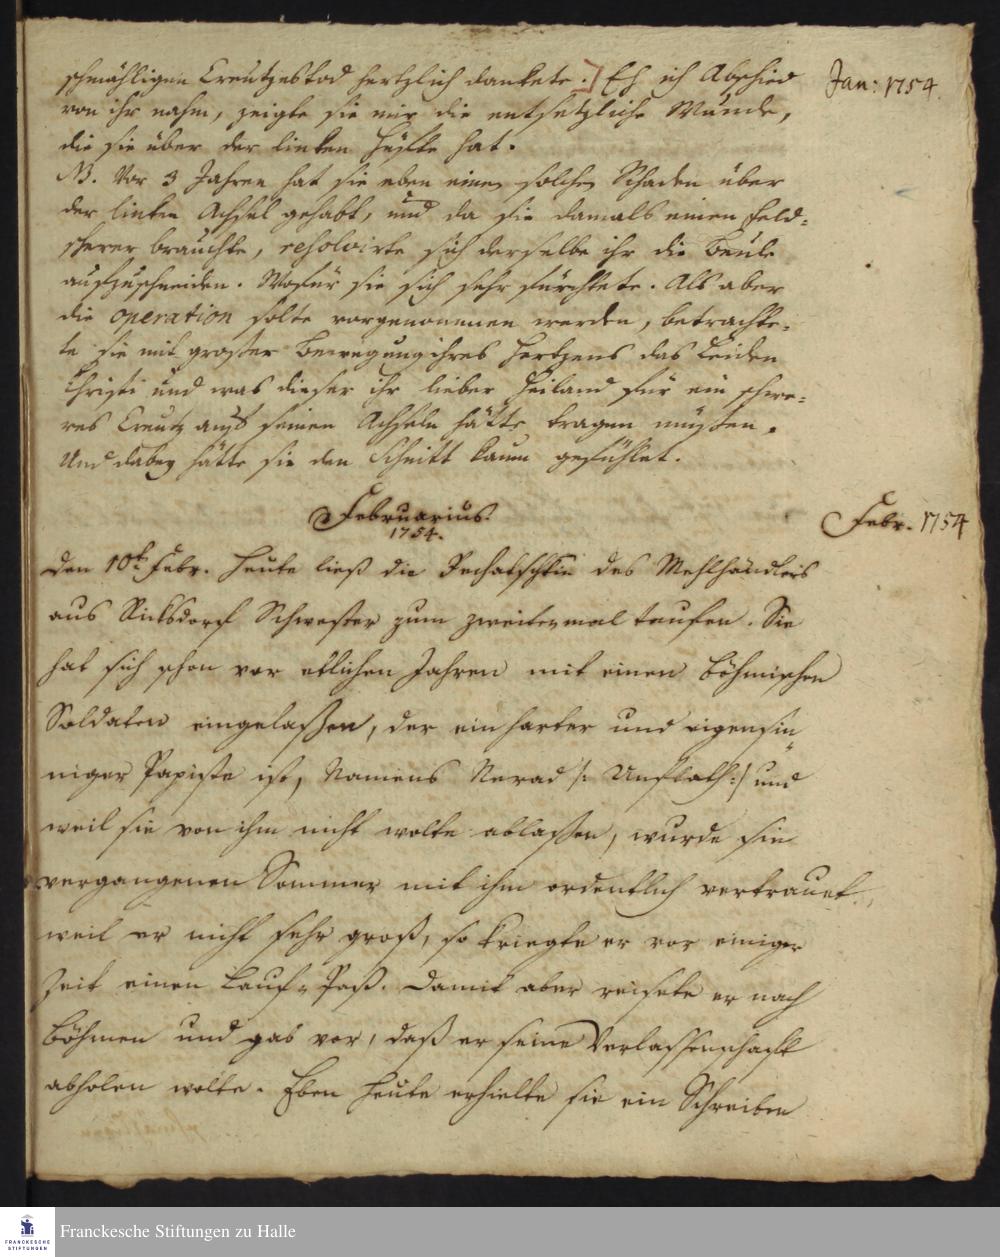 schmähligen Creutzestod hertzlich danckete.] Eh ich Abschied
Jan: 1754.
von ihr nahm, zeigte sie mir die entsetzliche Wunde,
die sie über der lincken Hüfte hat.
NB. Vor 3 Jahren hat sie eben einen solchen Schaden über
der lincken Achsel gehabt, und da sie damals einen Feld-
scherer brauchte, resolvirte sich derselbe ihr die Beule
aufzuschneiden. Wofür sie sich sehr fürchtete. Als aber
die operation solte vorgenommen werden, betrachte-
te sie mit großer Bewegung ihres Hertzens das Leiden
Christi und was dieser ihr lieber Heiland für ein schwe-
res Creutz auf seinen Achseln hätte tragen müßen.
Und dabey hätte sie den Schnitt kaum gefühlet.
Februarius.
1754.
Febr. 1754
Den 10t. Febr. Heute ließ die des Mehlhändlers
aus Ricksdorf Schwester zum zweitenmal taufen. Sie
hat sich schon vor etlichen Jahren mit einen böhmischen
Soldaten eingelaßen, der ein harter und eigensin-
niger Papiste ist, Namens Nerad /: Unflath :/ und
weil sie von ihm nicht wolte ablaßen, wurde sie
vergangenen Sommer mit ihm ordentlich vertrauet.
weil er nicht sehr groß, so kriegte er vor einiger
Zeit einen Lauf-Paß. Damit aber reisete er nach
Böhmen und gab vor, daß er seine Verlassenschaft
abholen wolte. Eben heute erhielte sie ein Schreiben
FRANCKESCHE
STIFTUNGEN
Franckesche Stiftungen zu Halle